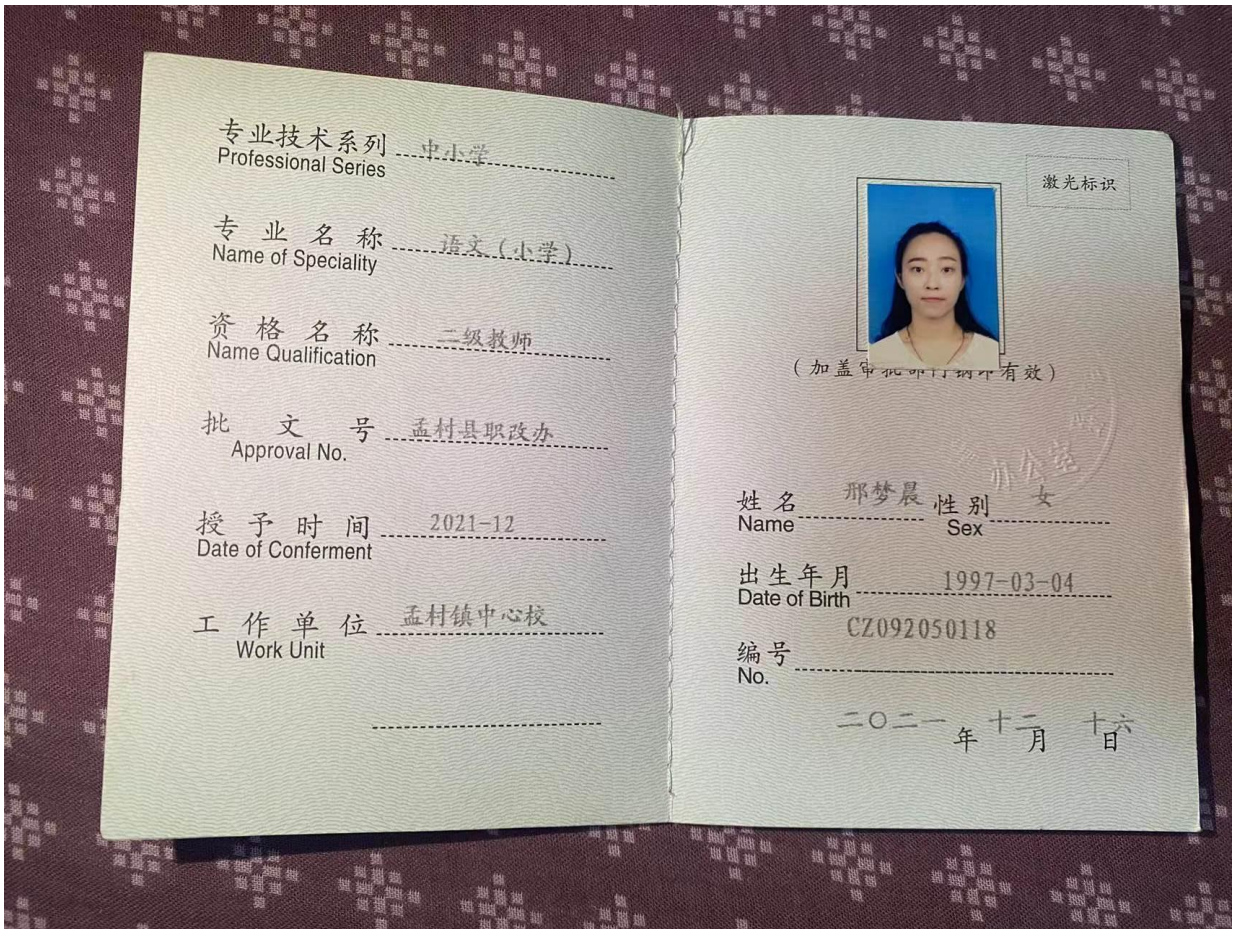 专业技术系列 中小学
Professional Series
专业名称 语文(小学)
Name of Speciality
资格名称 二级教师
Name Qualification
批文号 孟村县职改办
Approval No.
授予时间 2021-12
Date of Conferment
工作单位 孟村镇中心校
Work Unit
激光标识
(加盖审批部门钢印有效)
办公室
姓名 邢梦晨 性别 女
Name Sex
出生年月 1997-03-04
Date of Birth
CZ092050118
编号
No.
二〇二一年十二月十六日